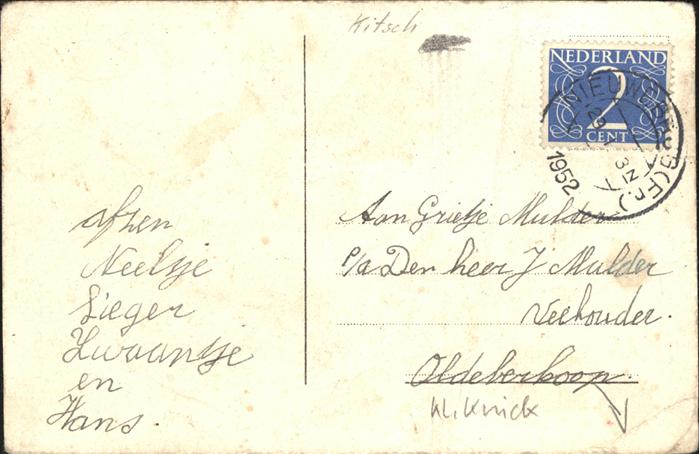 Kitsch
NEDERLAND
2
CENT
1952
afzen
Neeltje
Sieger
Zwaantje
en
Hans.
Aan Grietje Mulder
p/a Den heer J Mulder
Veehouder.
Oldeberkoop
kl. Knick